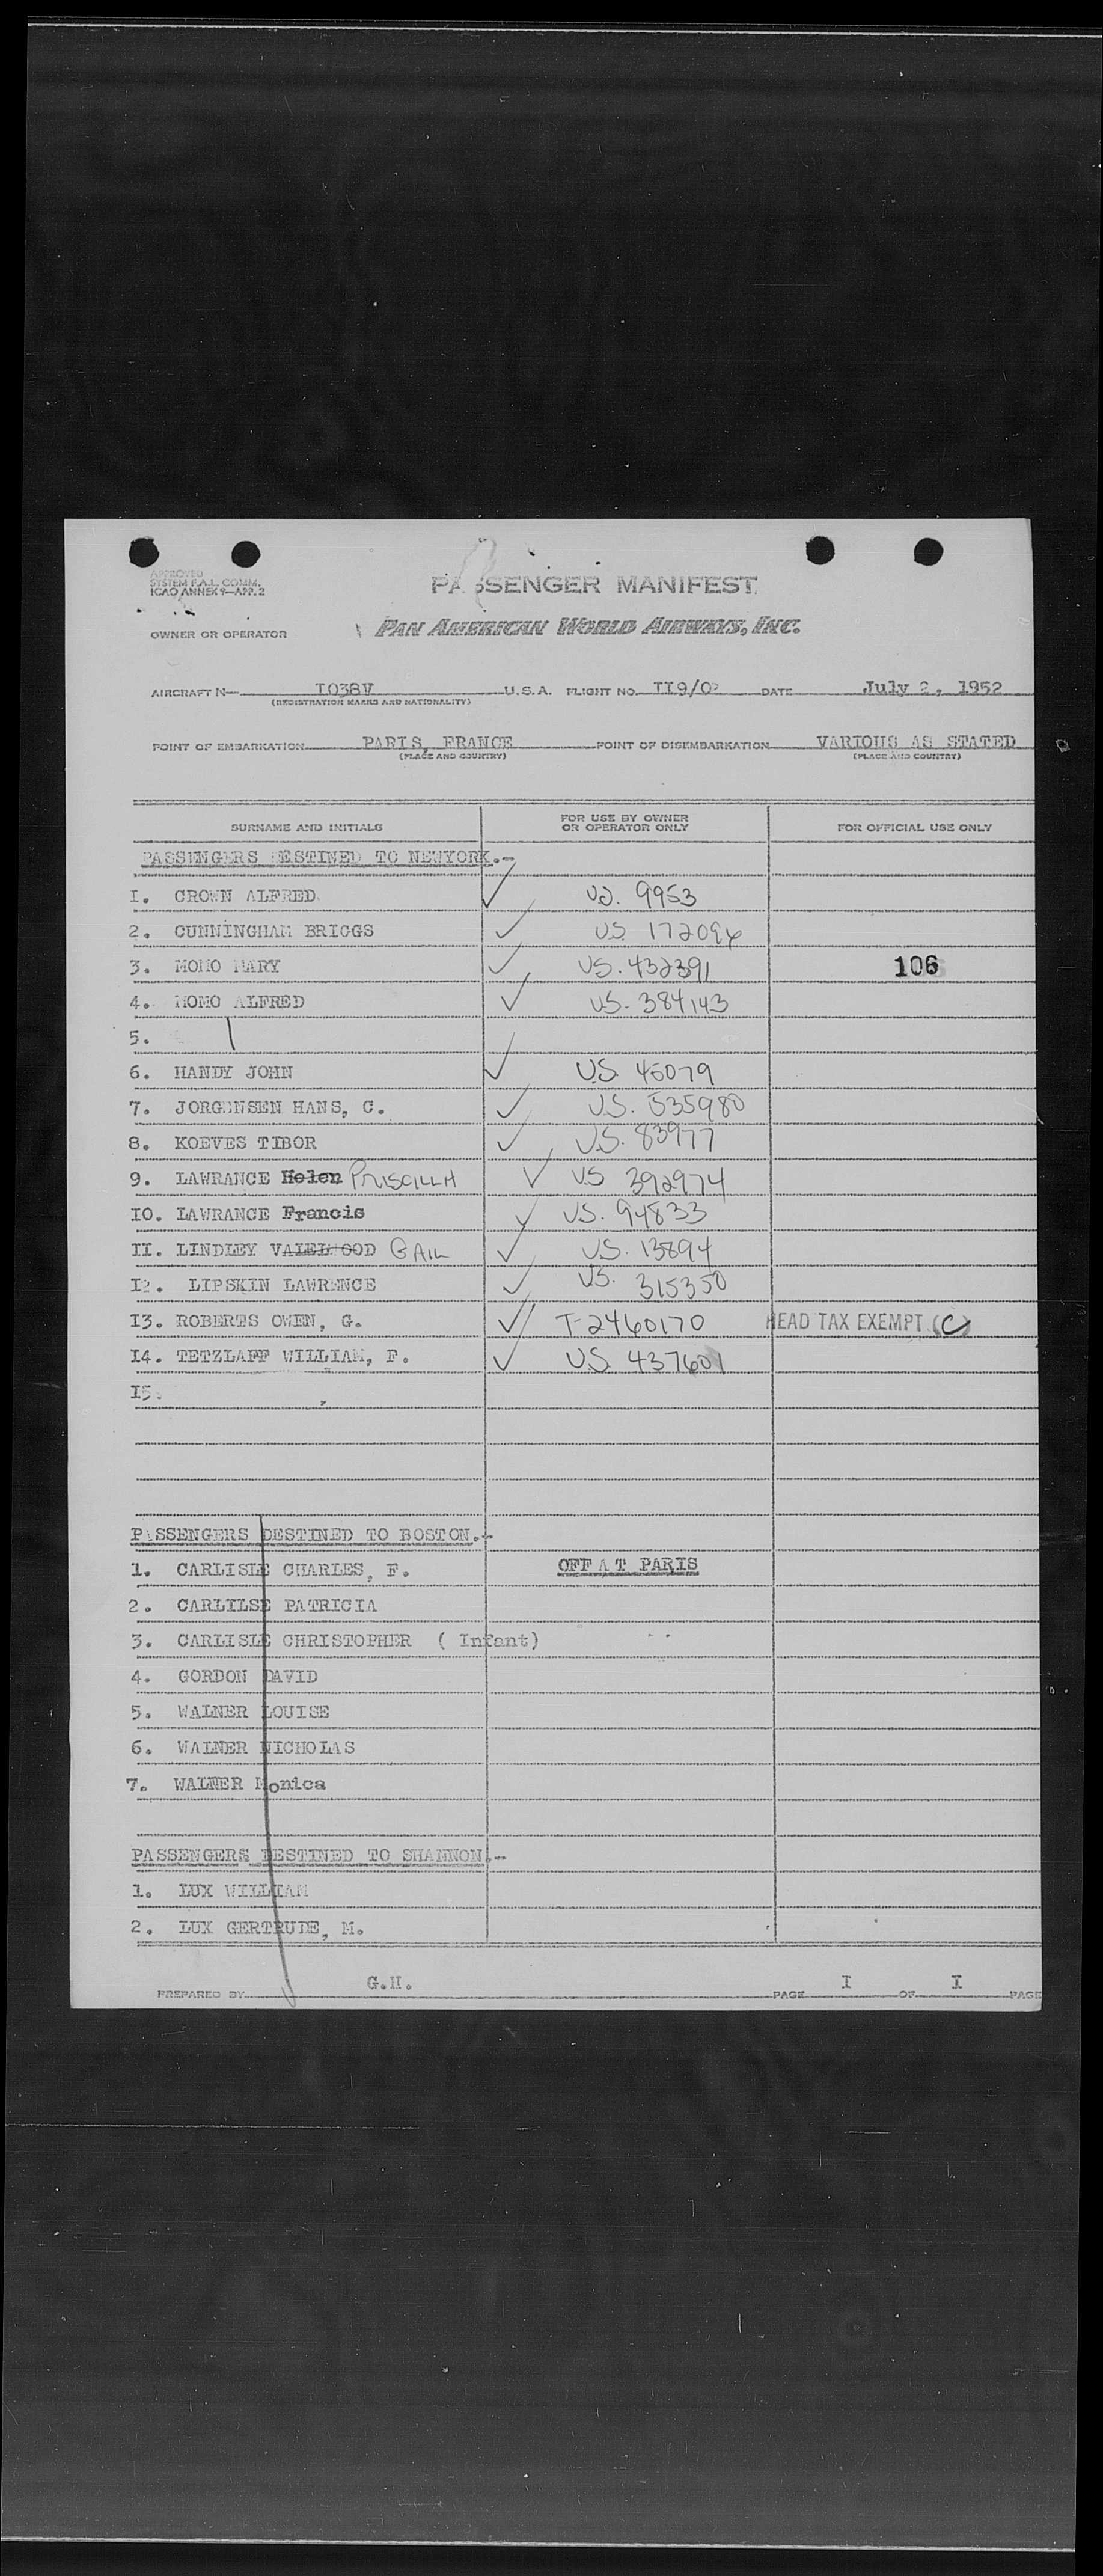 APPROVED
SYSTEM F.A.L. COMM.
ICAO ANNEX 9—APP. 2
PASSENGER MANIFEST
OWNER OR OPERATOR PAN AMERICAN WORLD AIRWAYS, INC.
AIRCRAFT N— I038V U.S.A. FLIGHT NO. II9/02 DATE July 2, 1952
(REGISTRATION MARKS AND NATIONALITY)
POINT OF EMBARKATION PARIS, FRANCE POINT OF DISEMBARKATION VARIOUS AS STATED
(PLACE AND COUNTRY) (PLACE AND COUNTRY)
SURNAME AND INITIALS FOR USE BY OWNER OR OPERATOR ONLY FOR OFFICIAL USE ONLY
PASSENGERS DESTINED TO NEWYORK.-
I. CROWN ALFRED. ✓ US. 9953
2. CUNNINGHAM BRIGGS ✓ US 172094
3. MOMO MARY ✓ US. 432391 106
4. MOMO ALFRED ✓ US. 384143
5.
6. HANDY JOHN ✓ US 45079
7. JORGENSEN HANS, C. ✓ U.S. 535980
8. KOEVES TIBOR ✓ U.S. 83977
9. LAWRANCE Helen PRISCILLA ✓ US 392974
IO. LAWRANCE Francis ✓ US. 94833
II. LINDLEY VALELWOOD GAIL ✓ US. 13894
I2. LIPSKIN LAWRENCE ✓ US. 315350
I3. ROBERTS OWEN, G. ✓ T-2460170 HEAD TAX EXEMPT (C)
I4. TETZLAFF WILLIAM, F. ✓ US 437601
I5.
PASSENGERS DESTINED TO BOSTON.-
1. CARLISLE CHARLES, F. OFF A T PARIS
2. CARLILSE PATRICIA
3. CARLISLE CHRISTOPHER ( Infant)
4. GORDON DAVID
5. WALNER LOUISE
6. WALNER NICHOLAS
7. WALNER Monica
PASSENGERS DESTINED TO SHANNON.-
1. LUX WILLIAM
2. LUX GERTRUDE, M.
PREPARED BY G.H. PAGE I OF I PAGE